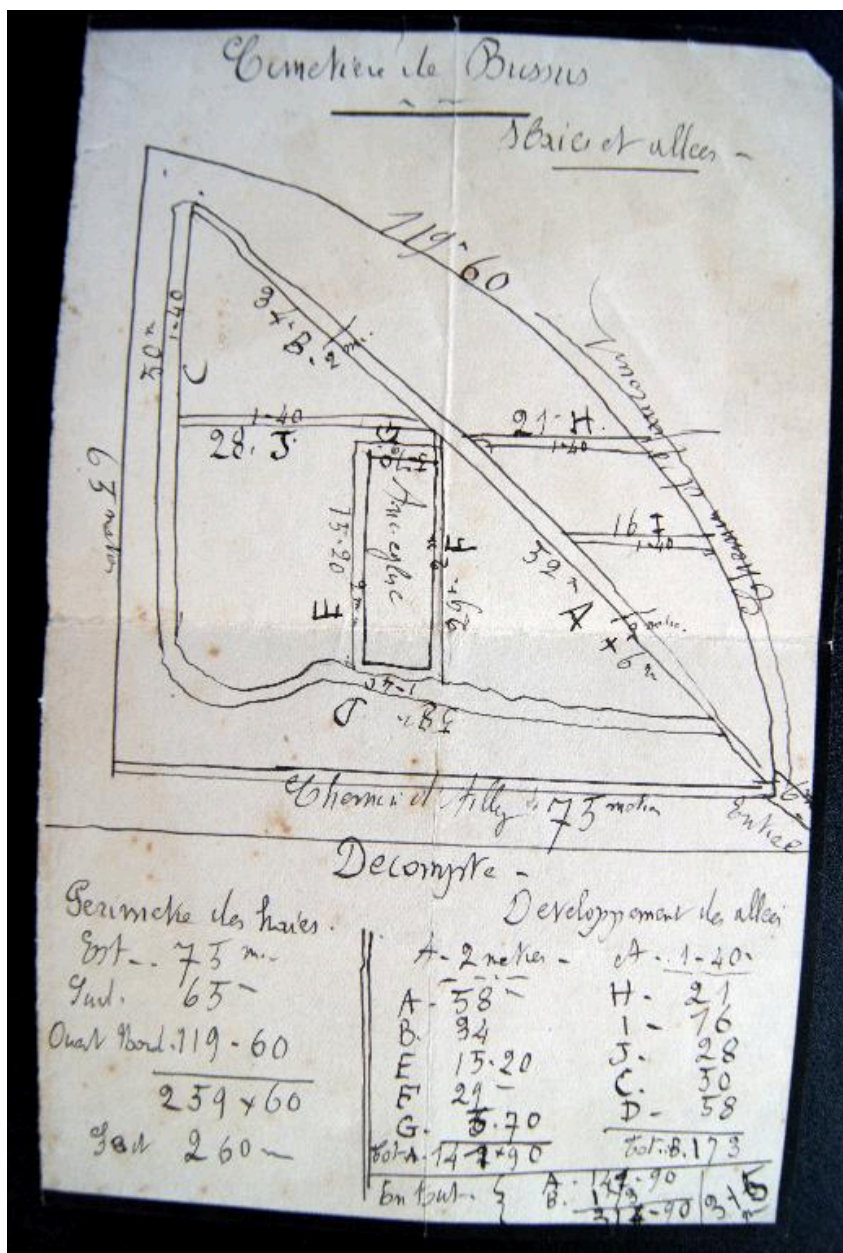 Cimetière de Bussus
Haies et allées -
119m 60
Chemin d'Yaucourt
34m B. 2m.
50m
1-40
C
1-40
28. J.
G
21 - H.
1-40
16 I
1-40
Anc. eglise
15-20
2m
E
F
2m
29m
52m A x 6m
2 metres
63 metres
1-40
D
58m
Chemin d'Ailly
75 metres
Entree
6m
Decompte -
Perimetre des haies.
Est - 75 m.
Sud. 65 -
Ouest Nord. 119 - 60
259 x 60
Soit 260 m
Developpement des allees
A - 2 metres -
A - 58 m
B. 34
E 15-20
E 29 -
G. 5.70
Tot. A. 141 x 90
A - 1-40 -
H - 21
I - 16
J - 28
C. 50
D - 58
Tot. B. 173
En tout - { A - 141-90
B. 173
314-90
315 m